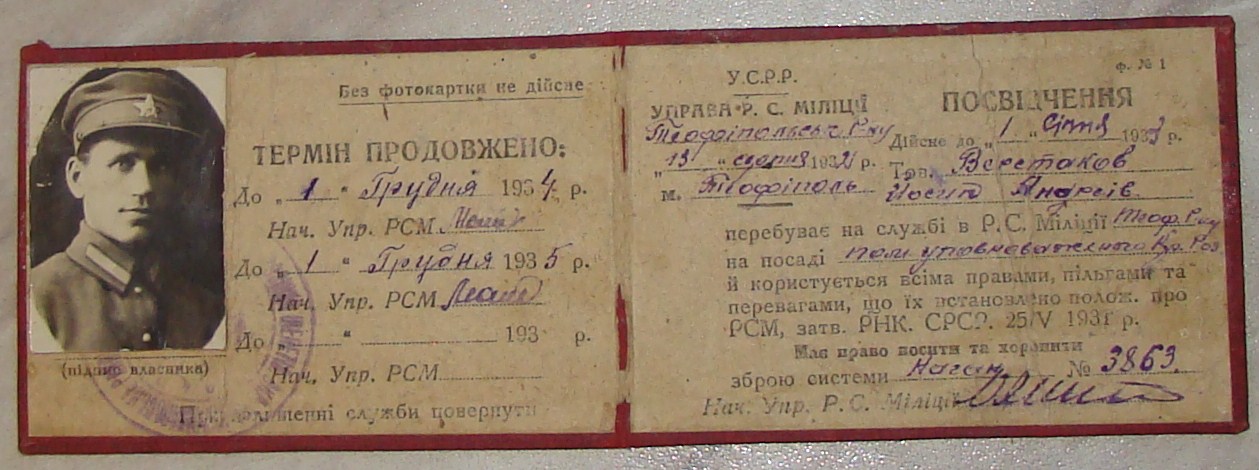 Без фотокартки не дійсне
ТЕРМІН ПРОДОВЖЕНО:
До „ 1 " Грудня 1934 р.
Нач. Упр. РСМ
До „ 1 " Грудня 1935 р.
Нач. Упр. РСМ
До „ " 193 р.
Нач. Упр. РСМ
(підпис власника)
При звільненні служби повернути
У.С.Р.Р.
УПРАВА Р. С. МІЛІЦІЇ
Теофіпольськ Р-ну
„ 13 " серпня 1932 р.
м. Теофіполь
ф. № 1
ПОСВІДЧЕННЯ
Дійсне до „ 1 " Січня 1933 р.
Тов. Верстаков
Йосип Андреів
перебуває на службі в Р.С. Міліції Теоф. Р-ну
на посаді
й користується всіма правами, пільгами та
перевагами, що їх встановлено полож. про
РСМ, затв. РНК. СРСР. 25/V 1931 р.
Має право носити та хоронити
зброю системи Наган № 3863.
Нач. Упр. Р. С. Міліції